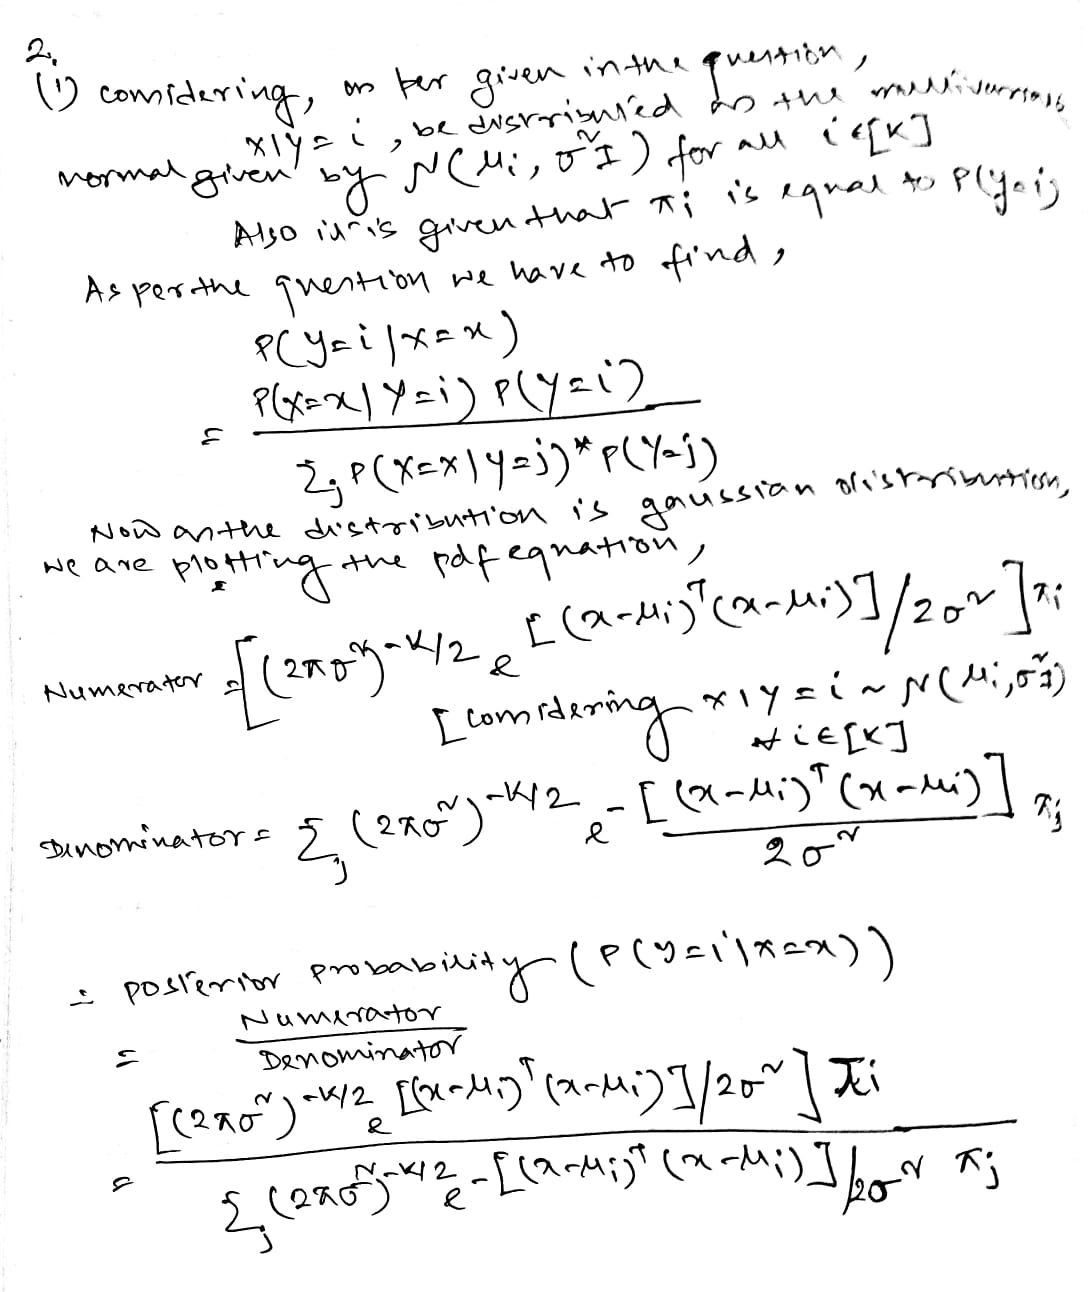 2.
(i) considering, as per given in the question,
X|Y = i, be distributed as the multivariate
normal given by N(μi, σ²I) for all i ∈ [K]
Also it is given that πi is equal to P(y=i)
As per the question we have to find,
P(y=i | X=x)
= P(X=x | Y=i) P(Y=i) / Σj P(X=x | Y=j) * P(Y=j)
Now as the distribution is gaussian distribution,
we are plotting the pdf equation,
Numerator = [(2πσ²)^-K/2 e^[(x-μi)^T (x-μi)]/2σ²] πi
[considering X|Y = i ~ N(μi, σ²I)
∀ i ∈ [K]
Denominator = Σj (2πσ²)^-K/2 e^-[(x-μi)^T (x-μi)]/2σ² πj
∴ posterior probability (P(y=i | X=x))
= Numerator / Denominator
= [(2πσ²)^-K/2 e^[(x-μi)^T (x-μi)]/2σ²] πi / Σj (2πσ²)^-K/2 e^-[(x-μi)^T (x-μi)]/2σ² πj